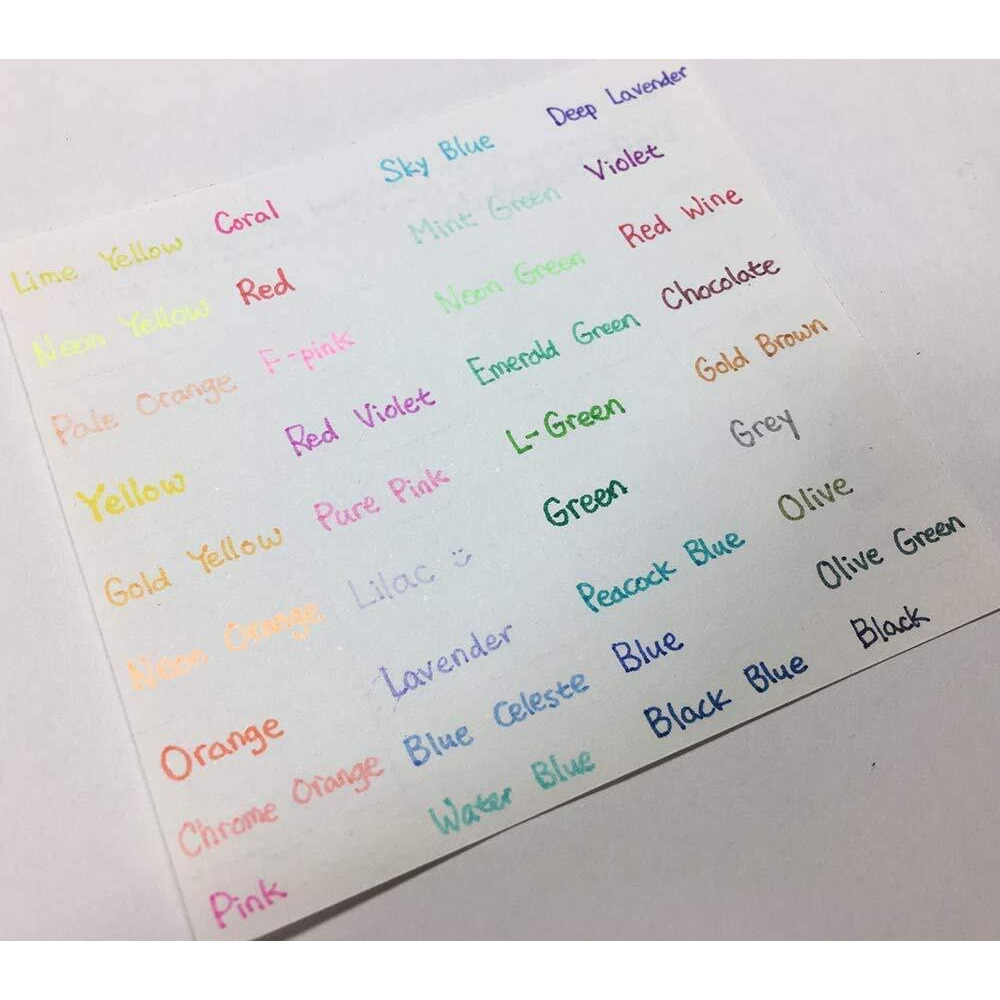 Lime Yellow
Neon Yellow
Pale Orange
Yellow
Gold Yellow
Neon Orange
Orange
Chrome Orange
Pink
Coral
Red
F-pink
Red Violet
Pure Pink
Lilac
Lavender
Blue Celeste
Water Blue
Sky Blue
Mint Green
Neon Green
Emerald Green
L-Green
Green
Peacock Blue
Blue
Black Blue
Deep Lavender
Violet
Red Wine
Chocolate
Gold Brown
Grey
Olive
Olive Green
Black